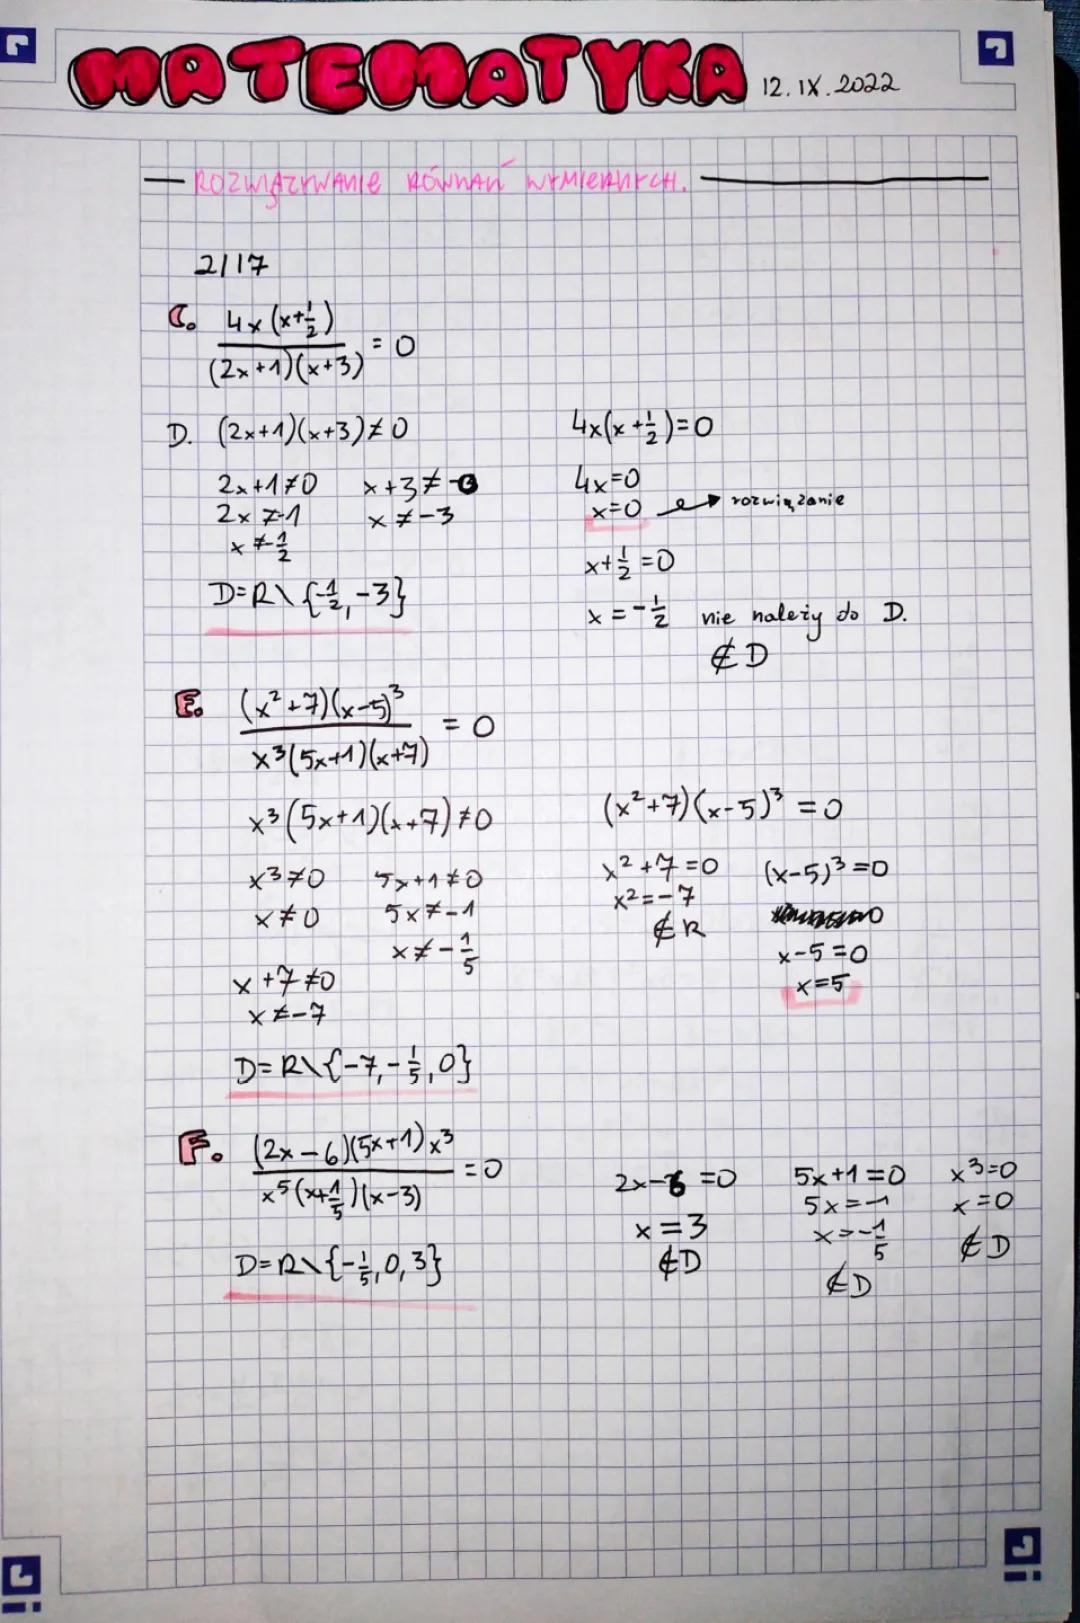 MATEMATYKA 12.IX.2022
ROZWIĄZYWANIE RÓWNAŃ WYMIERNYCH.
2/17
C. 4x(x+1/2) / (2x+1)(x+3) = 0
D. (2x+1)(x+3)≠0
2x+1≠0 x+3≠0
2x≠-1 x≠-3
x≠-1/2
D=R\{-1/2, -3}
4x(x+1/2)=0
4x=0
x=0 → rozwiązanie
x+1/2=0
x=-1/2 nie należy do D.
∉D
E. (x²+7)(x-5)³ / x³(5x+1)(x+7) = 0
x³(5x+1)(x+7)≠0
x³≠0 5x+1≠0
x≠0 5x≠-1
x≠-1/5
x+7≠0
x≠-7
D=R\{-7, -1/5, 0}
(x²+7)(x-5)³=0
x²+7=0 (x-5)³=0
x²=-7
∉R
x-5=0
x=5
F. (2x-6)(5x+1)x³ / x⁵(x+1/5)(x-3) = 0
D=R\{-1/5, 0, 3}
2x-6=0 5x+1=0 x³=0
x=3 5x=-1 x=0
∉D x=-1/5 ∉D
∉D